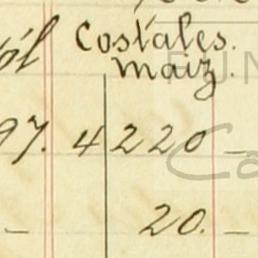 Costales.
maiz.
97. 4 220 —
— 20. —